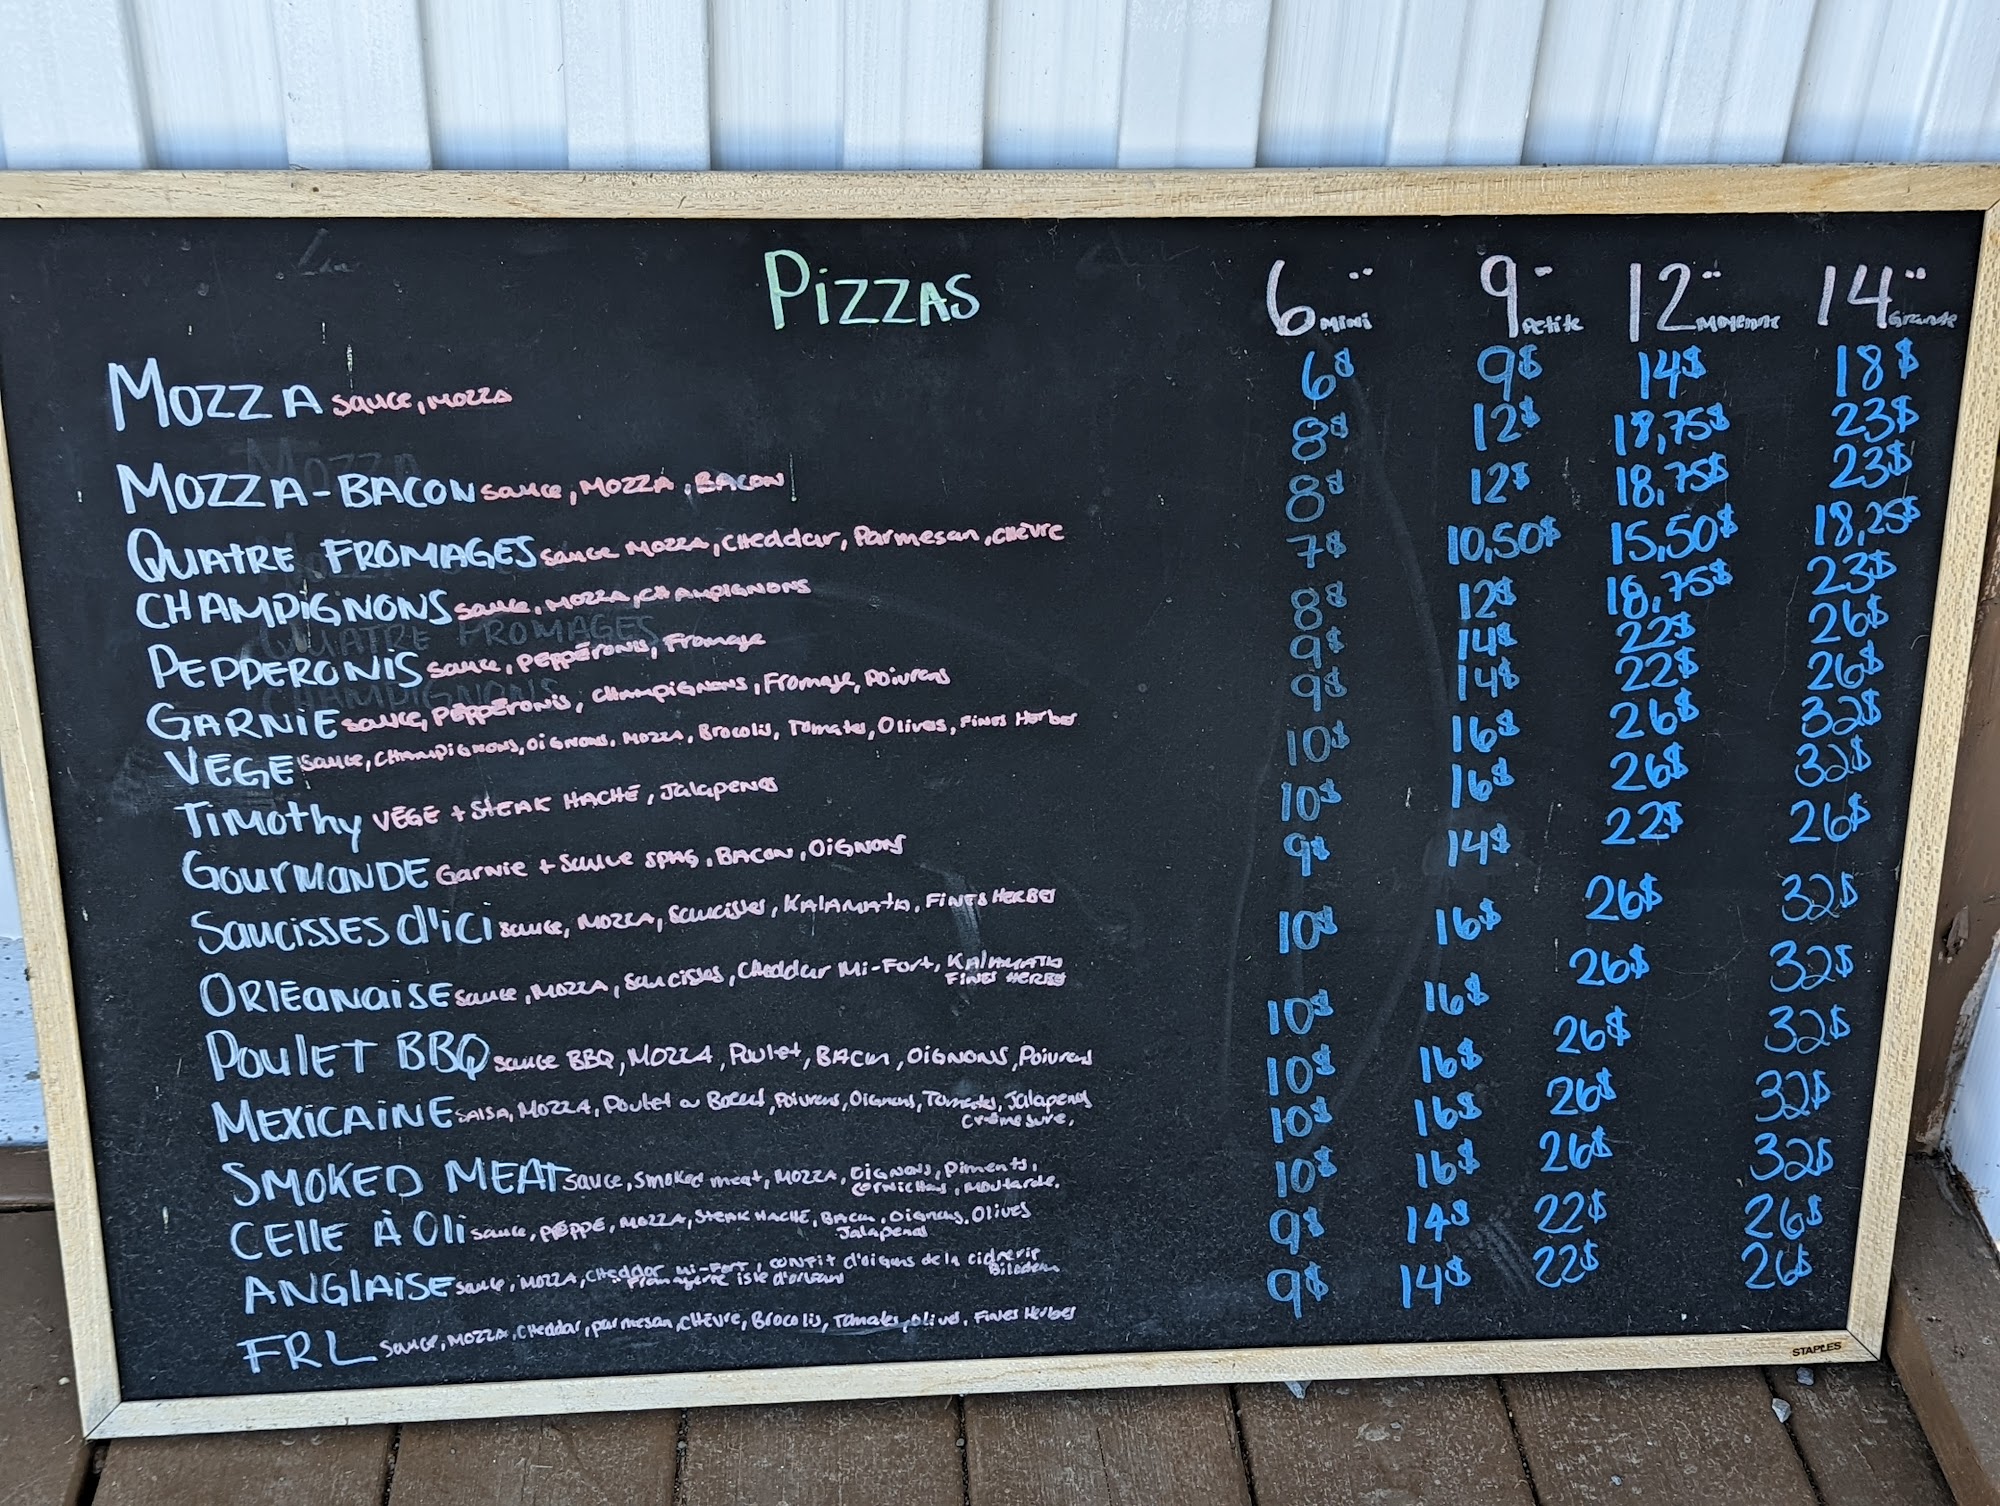 Pizzas 6" Mini 9" Petite 12" Moyenne 14" Grande
MOZZA sauce, MOZZA 6$ 9$ 14$ 18$
MOZZA-BACON sauce, MOZZA, BACON 8$ 12$ 18,75$ 23$
QUATRE FROMAGES sauce MOZZA, Cheddar, Parmesan, CHÈVRE 8$ 12$ 18,75$ 23$
CHAMPIGNONS sauce, MOZZA, CHAMPIGNONS 7$ 10,50$ 15,50$ 18,25$
PEPPERONIS sauce, PEPPÉRONIS, Fromage 8$ 12$ 18,75$ 23$
GARNIE sauce, PEPPÉRONIS, CHAMPIGNONS, Fromage, Poivrens 9$ 14$ 22$ 26$
VÉGÉ sauce, CHAMPIGNONS, OIGNONS, MOZZA, Brocolis, Tomates, Olives, Fines Herbes 9$ 14$ 22$ 26$
Timothy VÉGÉ + STEAK HACHÉ, Jalapenos 10$ 16$ 26$ 32$
GourMANDE Garnie + Sauce SPAG, BACON, OIGNONS 10$ 16$ 26$ 32$
Saucisses d'ici sauce, MOZZA, Saucisses, KALAMATA, FINES HERBES 9$ 14$ 22$ 26$
ORLÉANAISE sauce, MOZZA, Saucisses, Cheddar Mi-Fort, KALAMATA
FINES HERBES 10$ 16$ 26$ 32$
POULET BBQ sauce BBQ, MOZZA, Poulet, BACON, OIGNONS, Poivrens 10$ 16$ 26$ 32$
MEXICAINE SALSA, MOZZA, Poulet ou Boeuf, Poivrens, Oignons, Tomates, Jalapenos
Crème sure, 10$ 16$ 26$ 32$
SMOKED MEAT sauce, Smoked meat, MOZZA, OIGNONS, Piments,
cornichons, moutarde. 10$ 16$ 26$ 32$
CELLE À Oli sauce, PEPPÉ, MOZZA, STEAK HACHÉ, BACON, Oignons, Olives
Jalapenos 10$ 16$ 26$ 32$
ANGLAISE sauce, MOZZA, Cheddar Mi-Fort, confit d'oigons de la cidrerie Bilodeau
Fromagerie isle d'orléans 9$ 14$ 22$ 26$
FRL sauce, MOZZA, Cheddar, parmesan, CHÈVRE, Brocolis, Tomates, olives, Fines Herbes 9$ 14$ 22$ 26$
STAPLES